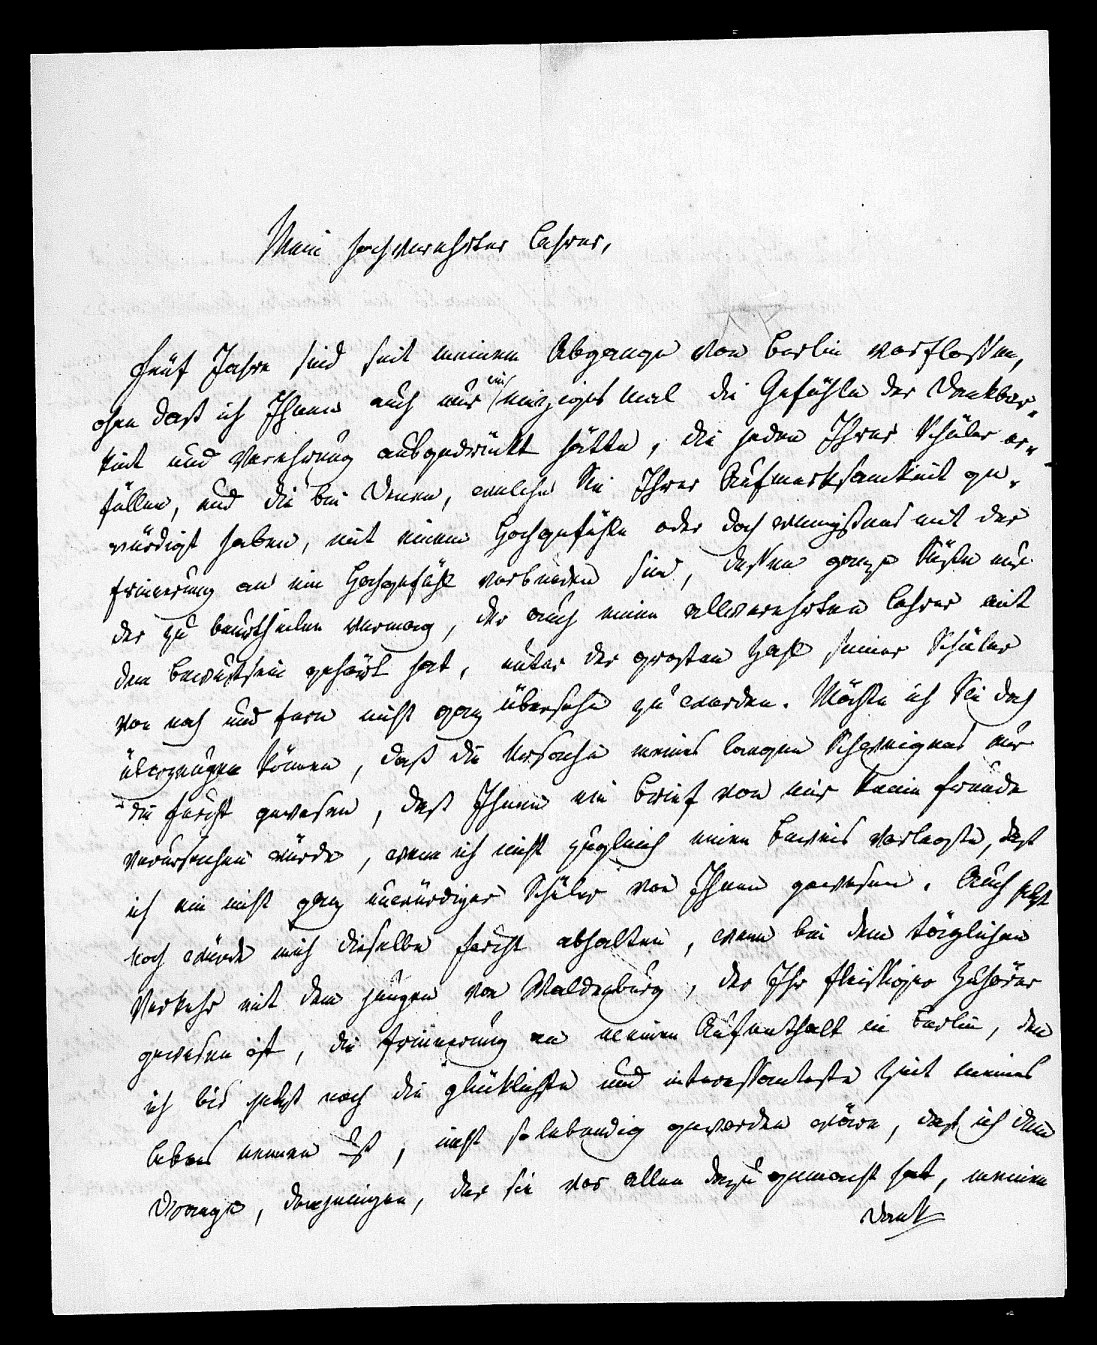 Mein hochverehrter Lehrer,
Fünf Jahre sind seit meinem Abgange von Berlin verflossen,
ohne daß ich Ihnen auch nur ein einziges Mal die Gefühle der Dankbar-
keit und Verehrung ausgedrückt hätte, die jeden Ihrer Schüler er-
füllen, und die bei denen, welche Sie Ihrer Aufmerksamkeit ge-
würdigt haben, mit einem Hochgefühle oder doch wenigstens mit der
Erinnerung an ein Hochgefühl verbunden sind, dessen ganze Süße nur
der zu beurtheilen vermag, der auch einen allverehrten Lehrer mit
dem Bewußtsein gehört hat, unter der großen Zahl seiner Schüler
von nah und fern nicht ganz übersehn zu werden. Möchte ich Sie doch
überzeugen können, daß die Ursache meines langen Schweigens nur
die Furcht gewesen, daß Ihnen ein Brief von mir keine Freude
verursachen würde, wenn ich nicht zugleich einen Beweis vorlegte, daß
ich ein nicht ganz unwürdiger Schüler von Ihnen gewesen. Auch jetzt
noch würde mich dieselbe Furcht abhalten, wenn bei dem täglichen
Verkehr mit dem jungen von Waldenburg, der Ihr fleißiger Zuhörer
gewesen ist, die Erinnerung an meinen Aufenthalt in Berlin, den
ich bis jetzt noch die glücklichste und interessanteste Zeit meines
Lebens nennen muß, nicht so lebendig geworden wäre, daß ich dem
Drange, demjenigen, der sie vor allen dazu gemacht hat, meinen
Dank